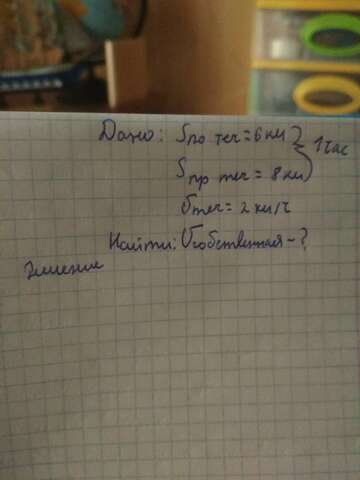 Дано: Sпо теч = 6 км } 1 час
Sпр теч = 8 км
υтеч = 2 км/ч
Найти: υсобственная - ?
Решение